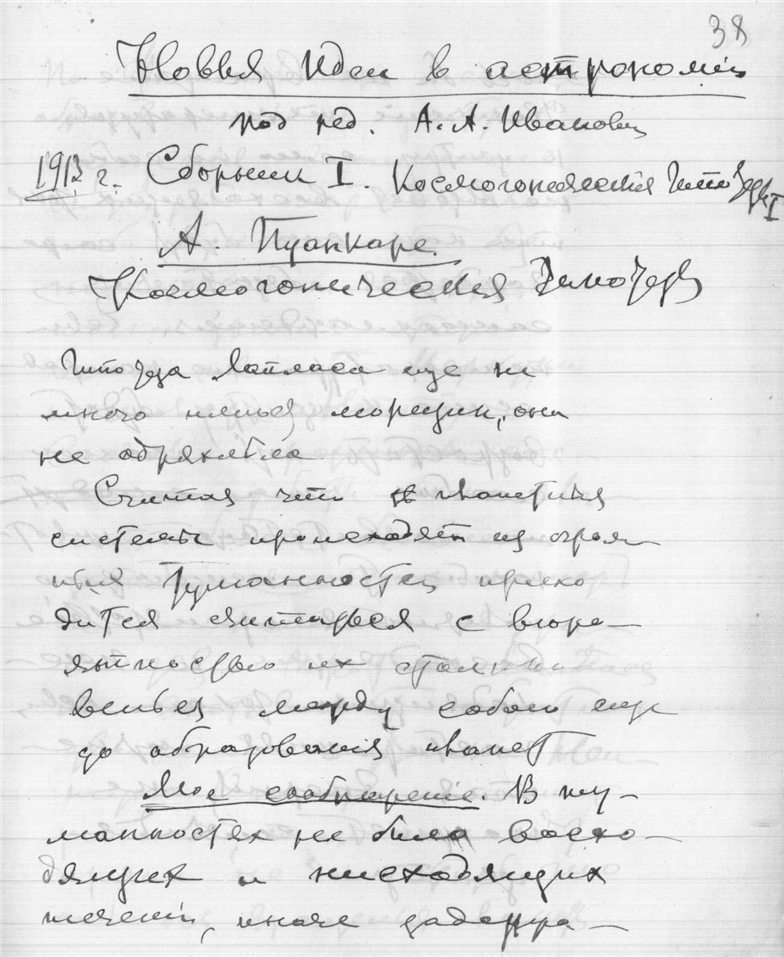 38
Новыя идеи в астрономіи
под ред. А. А. Иванова
1913 г. Сборник I. Космогоническія Гипотезы I
А. Пуанкаре.
Космогоническія Гипотезы
Гипотеза Лапласа еще не
много имеет морщин, она
не одряхлела
Считая что планетныя
системы происходят из огром
ных Туманностей прихо
дится считаться с вероя—
ятностью их столкно
венья между собою еще
до образования планет
Мое соображение. В ту—
манностях не было восхо—
дящих и нисходящих
течений, иначе задержа—